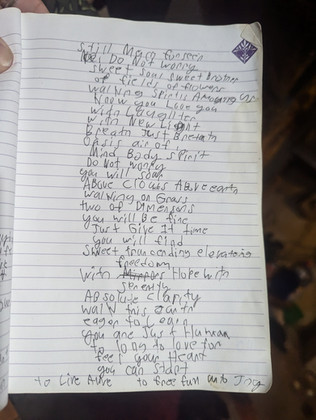 Still Man
Do Not worry
sweet soul sweet
of fields of flowers
walking spirits Amoung us
Know you Love you
with Laughter
with New Light
Breath Just Breath
Oasis air of
Mind Body spirit
Do Not worry
you will soar
Above clouds Above earth
walking on Grass
two of Dimensions
you will Be fine
Just Give It time
you will find
sweet trancending elevating
freedom
with Hope with
serenity
Absolute clarity
walk this earth
eager to Learn
you are Just Human
to long to love for
feel your Heart
you can start
to Live Alive to free fall into Joy